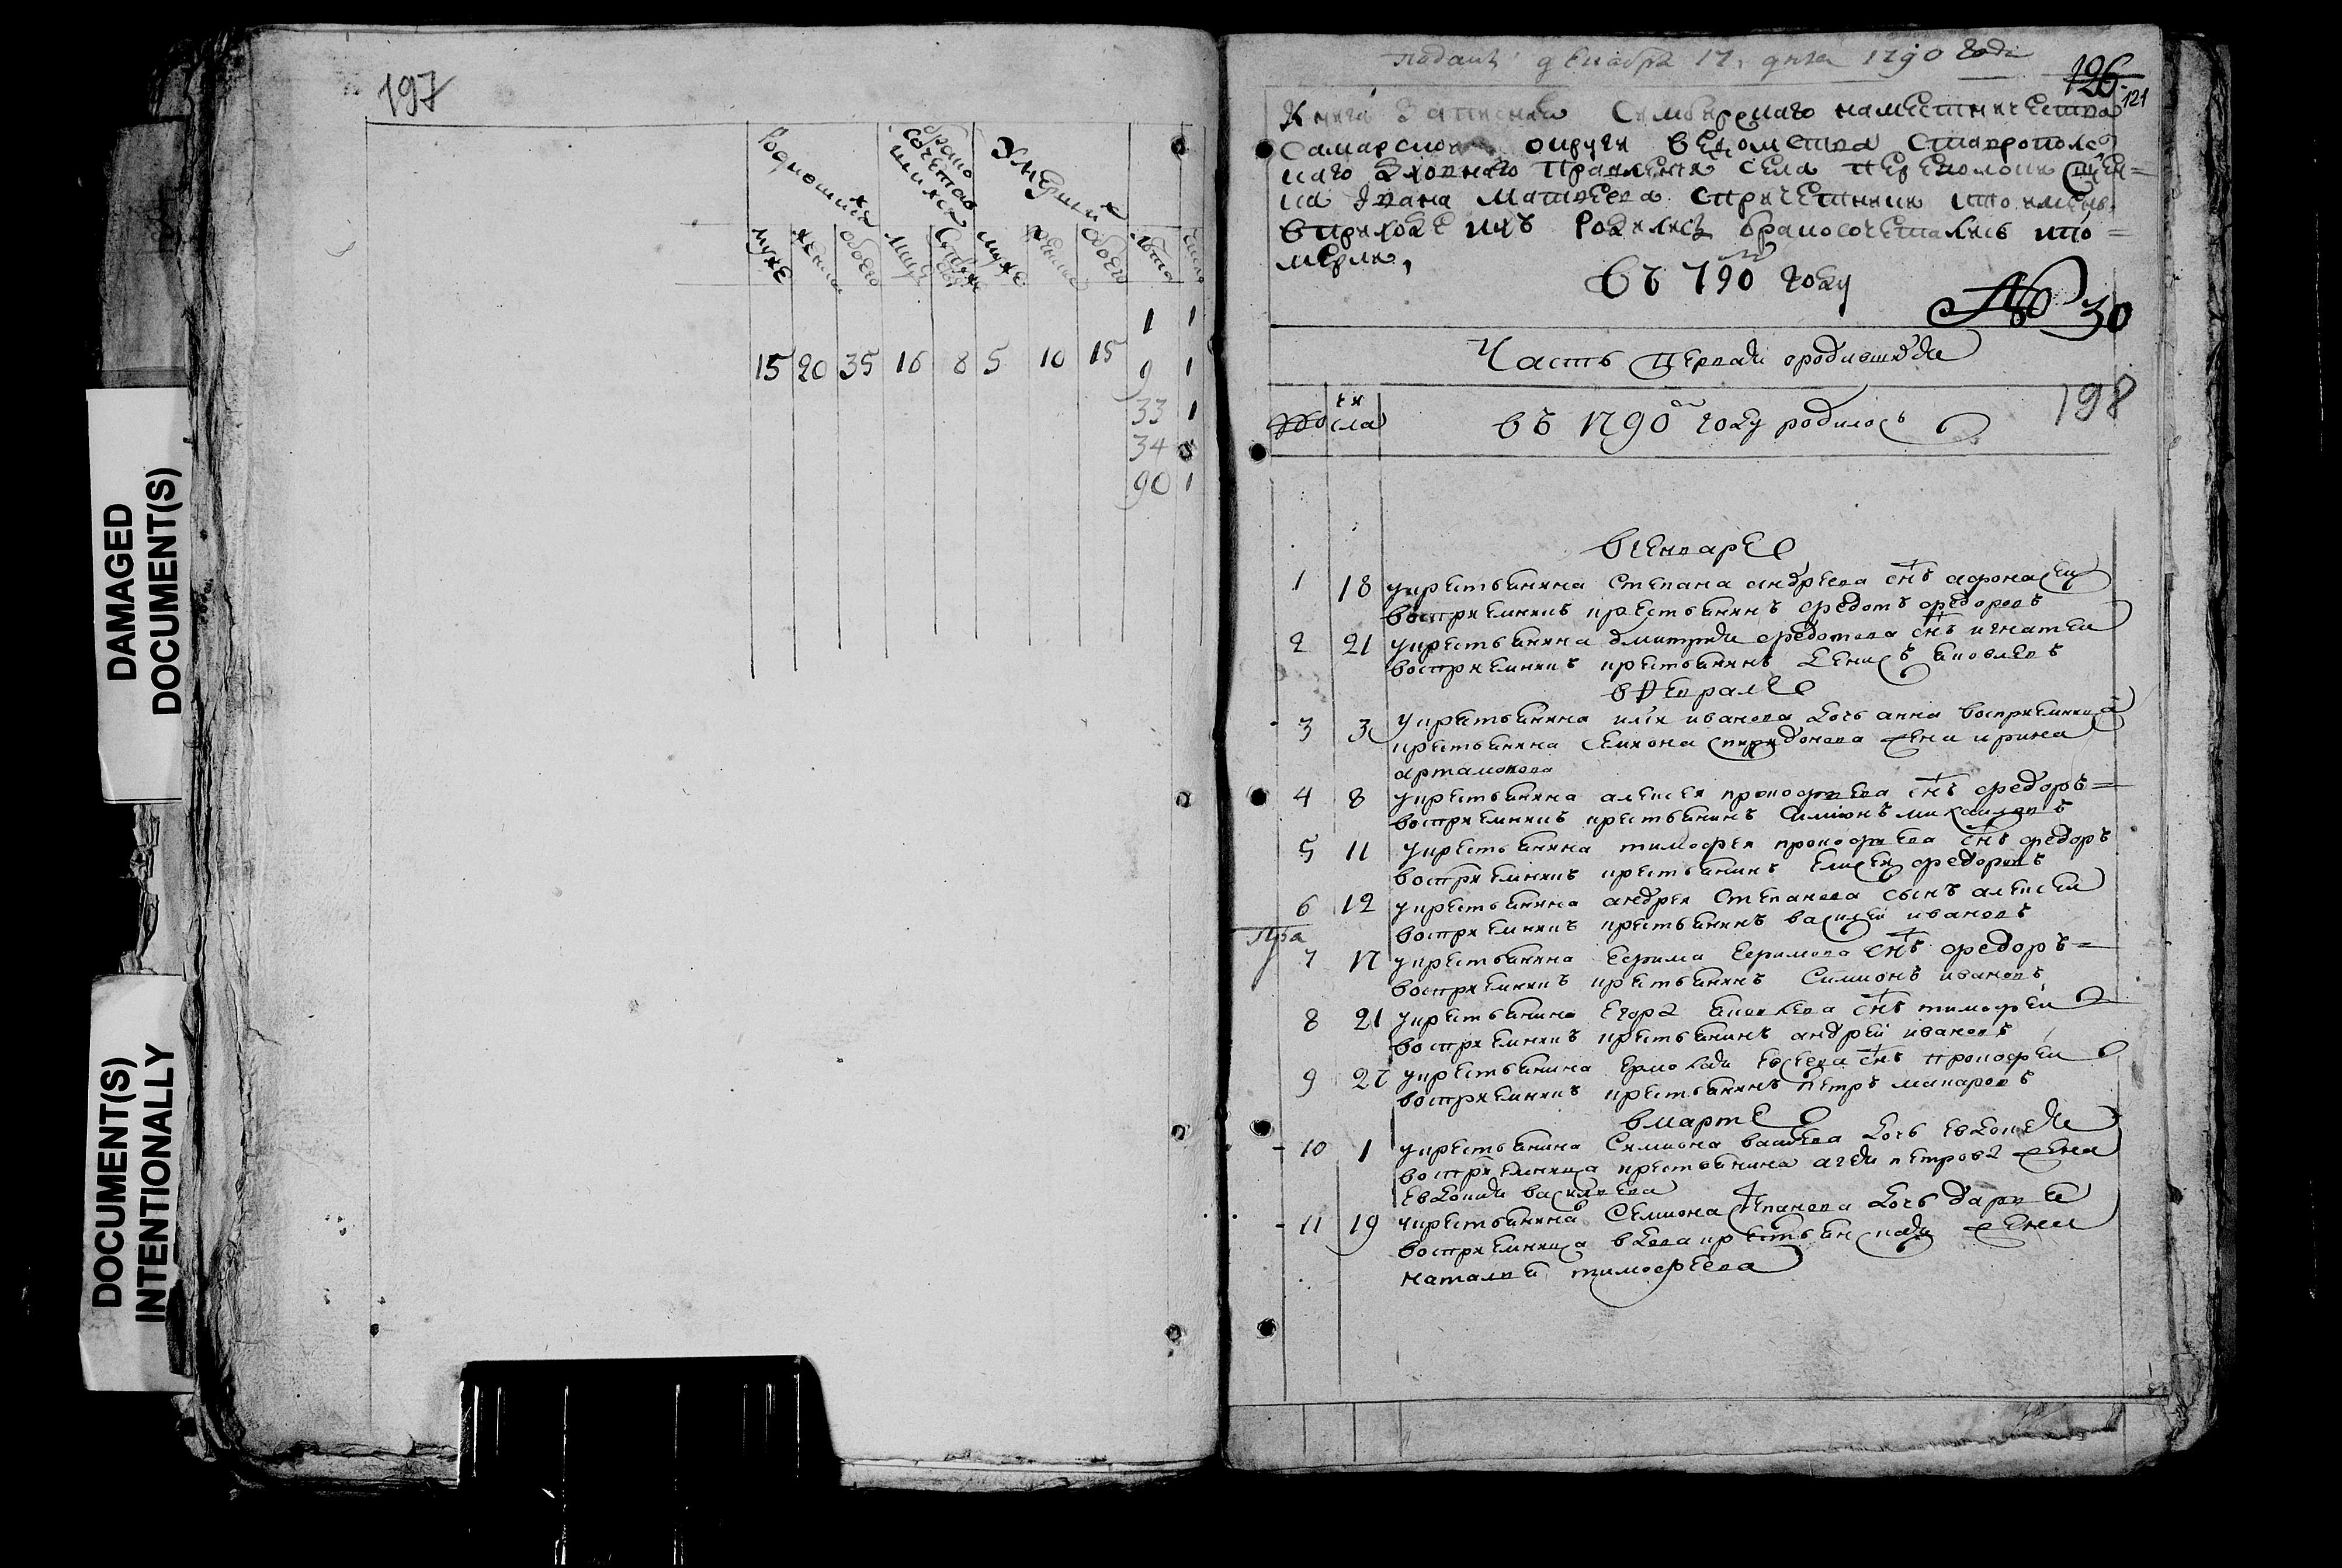 197
Родившихся
брако
сочетав
шихся
Умерших
мужеска
женска
обоего
мужеска
женска
обоего
лета
число
1 1
15 20 35 16 8 5 10 15 9 1
33 1
34
90 1
DAMAGED
DOCUMENT(S)
DOCUMENT(S)
INTENTIONALLY
подана декабря 17 дня 1790 года
126
121
Книга Записная Симбирскаго наместничества
Самарской округи ведомства Ставрополс
каго Духовнаго Правления села
ка Ивана Матвеева спричетники кто имены
вприходе ихъ Родились бракосочетались ипо=
мерли,
Въ 790 году
№ 30
Часть Перваяородившихся
198
№ числа въ 1790 году родилось
вгенваре
1 18 укрестьянина Степана андреева снъ афонасеи
восприемникъ крестьянинъ федотъ федоровъ
2 21 укрестьянина дмитрия федотова снъ игнатеи
восприемникъ крестьянинъ Денисъ яковлевъ
вфеврале
3 3 укрестьянина ильи иванова дочь анна восприемница
крестьянина Симиона спиридонова жена ирина
артамонова
4 8 укрестьянина алексея прокофьева снъ федоръ=
восприемникъ крестьянинъ Симионъ михаиловъ
5 11 укрестьянина тимофея прокофьева снъ федоръ
восприемникъ крестьянинъ Елисеи федоровъ
6 12 укрестьянина андрея Степанова сынъ алексеи
восприемникъ крестьянинъ василеи ивановъ
7 17 укрестьянина Ефима Ефимова снъ федоръ=
восприемникъ крестьянинъ Симионъ ивановъ
8 21 укрестьянина Егора яковлева снъ тимофеи
восприемникъ крестьянинъ андреи ивановъ
9 27 укрестьянина Ермолая Евсеева снъ прокофеи
восприемникъ крестьянинъ петръ макаровъ
вмарте
10 1 укрестьянина Симиона дочь Евдокия
восприемница крестьянина петрова жена
Евдокия василиева
11 19 укрестьянина Симиона Степанова дочь дарья
восприемница вдова крестьянская жена
наталья тимофеева